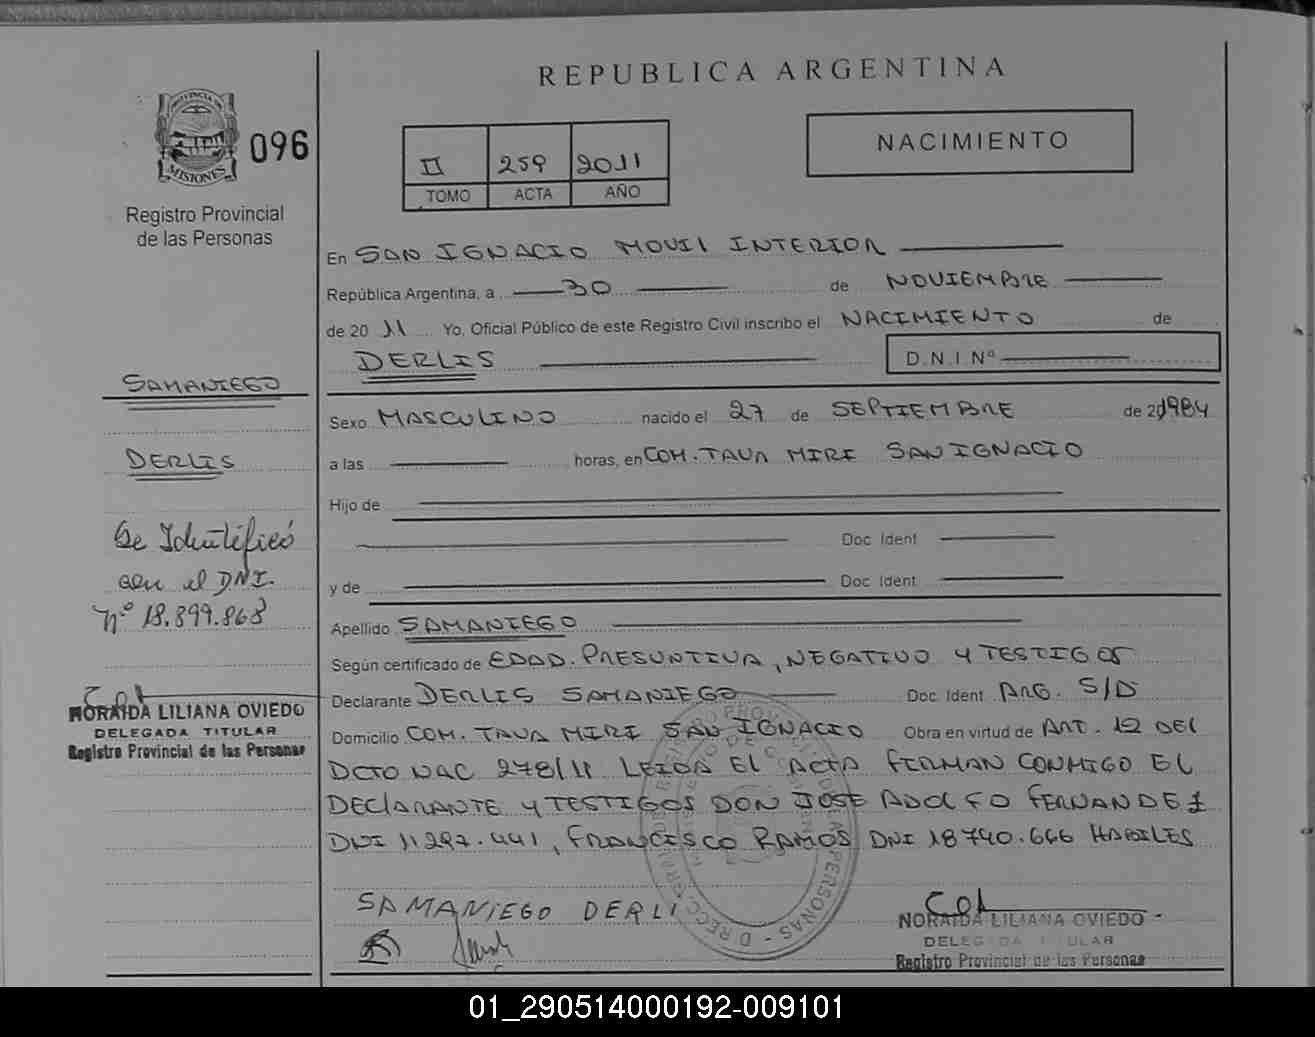 REPUBLICA ARGENTINA
PROVINCIA DE
MISIONES
096
Registro Provincial
de las Personas
II 259 2011
TOMO ACTA AÑO
NACIMIENTO
En SAN IGNACIO MOVIL INTERIOR
República Argentina, a 30 de NOVIEMBRE
de 20 11 Yo, Oficial Público de este Registro Civil inscribo el NACIMIENTO de
DERLIS D.N.I Nº
SAMANIEGO
Sexo MASCULINO nacido el 27 de SEPTIEMBRE de 1984
DERLIS
a las horas, en COM. TAVA MIRI SAN IGNACIO
Hijo de
Doc Ident
y de Doc Ident
Se Identificó
con el DNI.
nº 18.899.868
Apellido SAMANIEGO
Según certificado de EDAD. PRESUNTIVA, NEGATIVO Y TESTIGOS
Declarante DERLIS SAMANIEGO Doc. Ident ARG. S/D
Domicilio COM. TAVA MIRI SAN IGNACIO Obra en virtud de ART. 12 DEL
DCTO NAC 278/11 LEIDA EL ACTA FIRMAN CONMIGO EL
DECLARANTE Y TESTIGOS DON JOSE ADOLFO FERNANDEZ
DNI 11297.441, FRANCISCO RAMOS DNI 18740.646 HABILES
NORAIDA LILIANA OVIEDO
DELEGADA TITULAR
Registro Provincial de las Personas
SAMANIEGO DERLI
NORAIDA LILIANA OVIEDO
DELEGADA TITULAR
Registro Provincial de las Personas
01_290514000192-009101